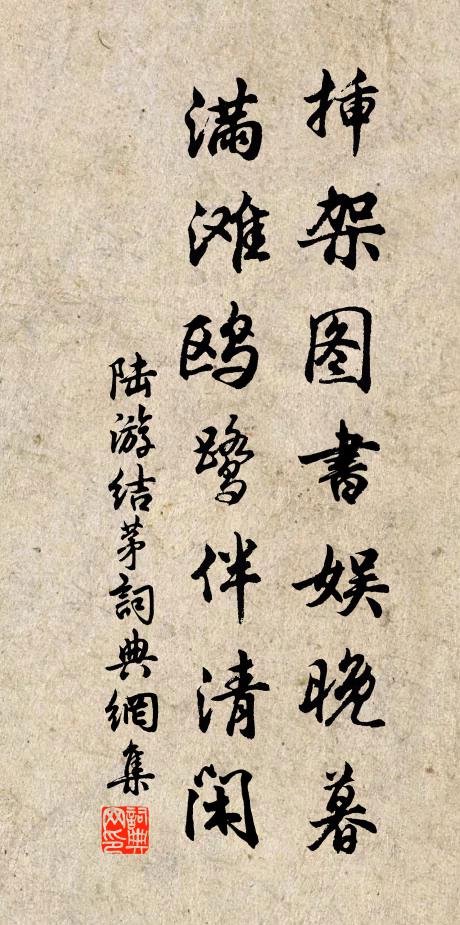 插架图書娱晚暮
满滩鸥鹭伴清闲
陆游结茅詞典網集
詞典网印